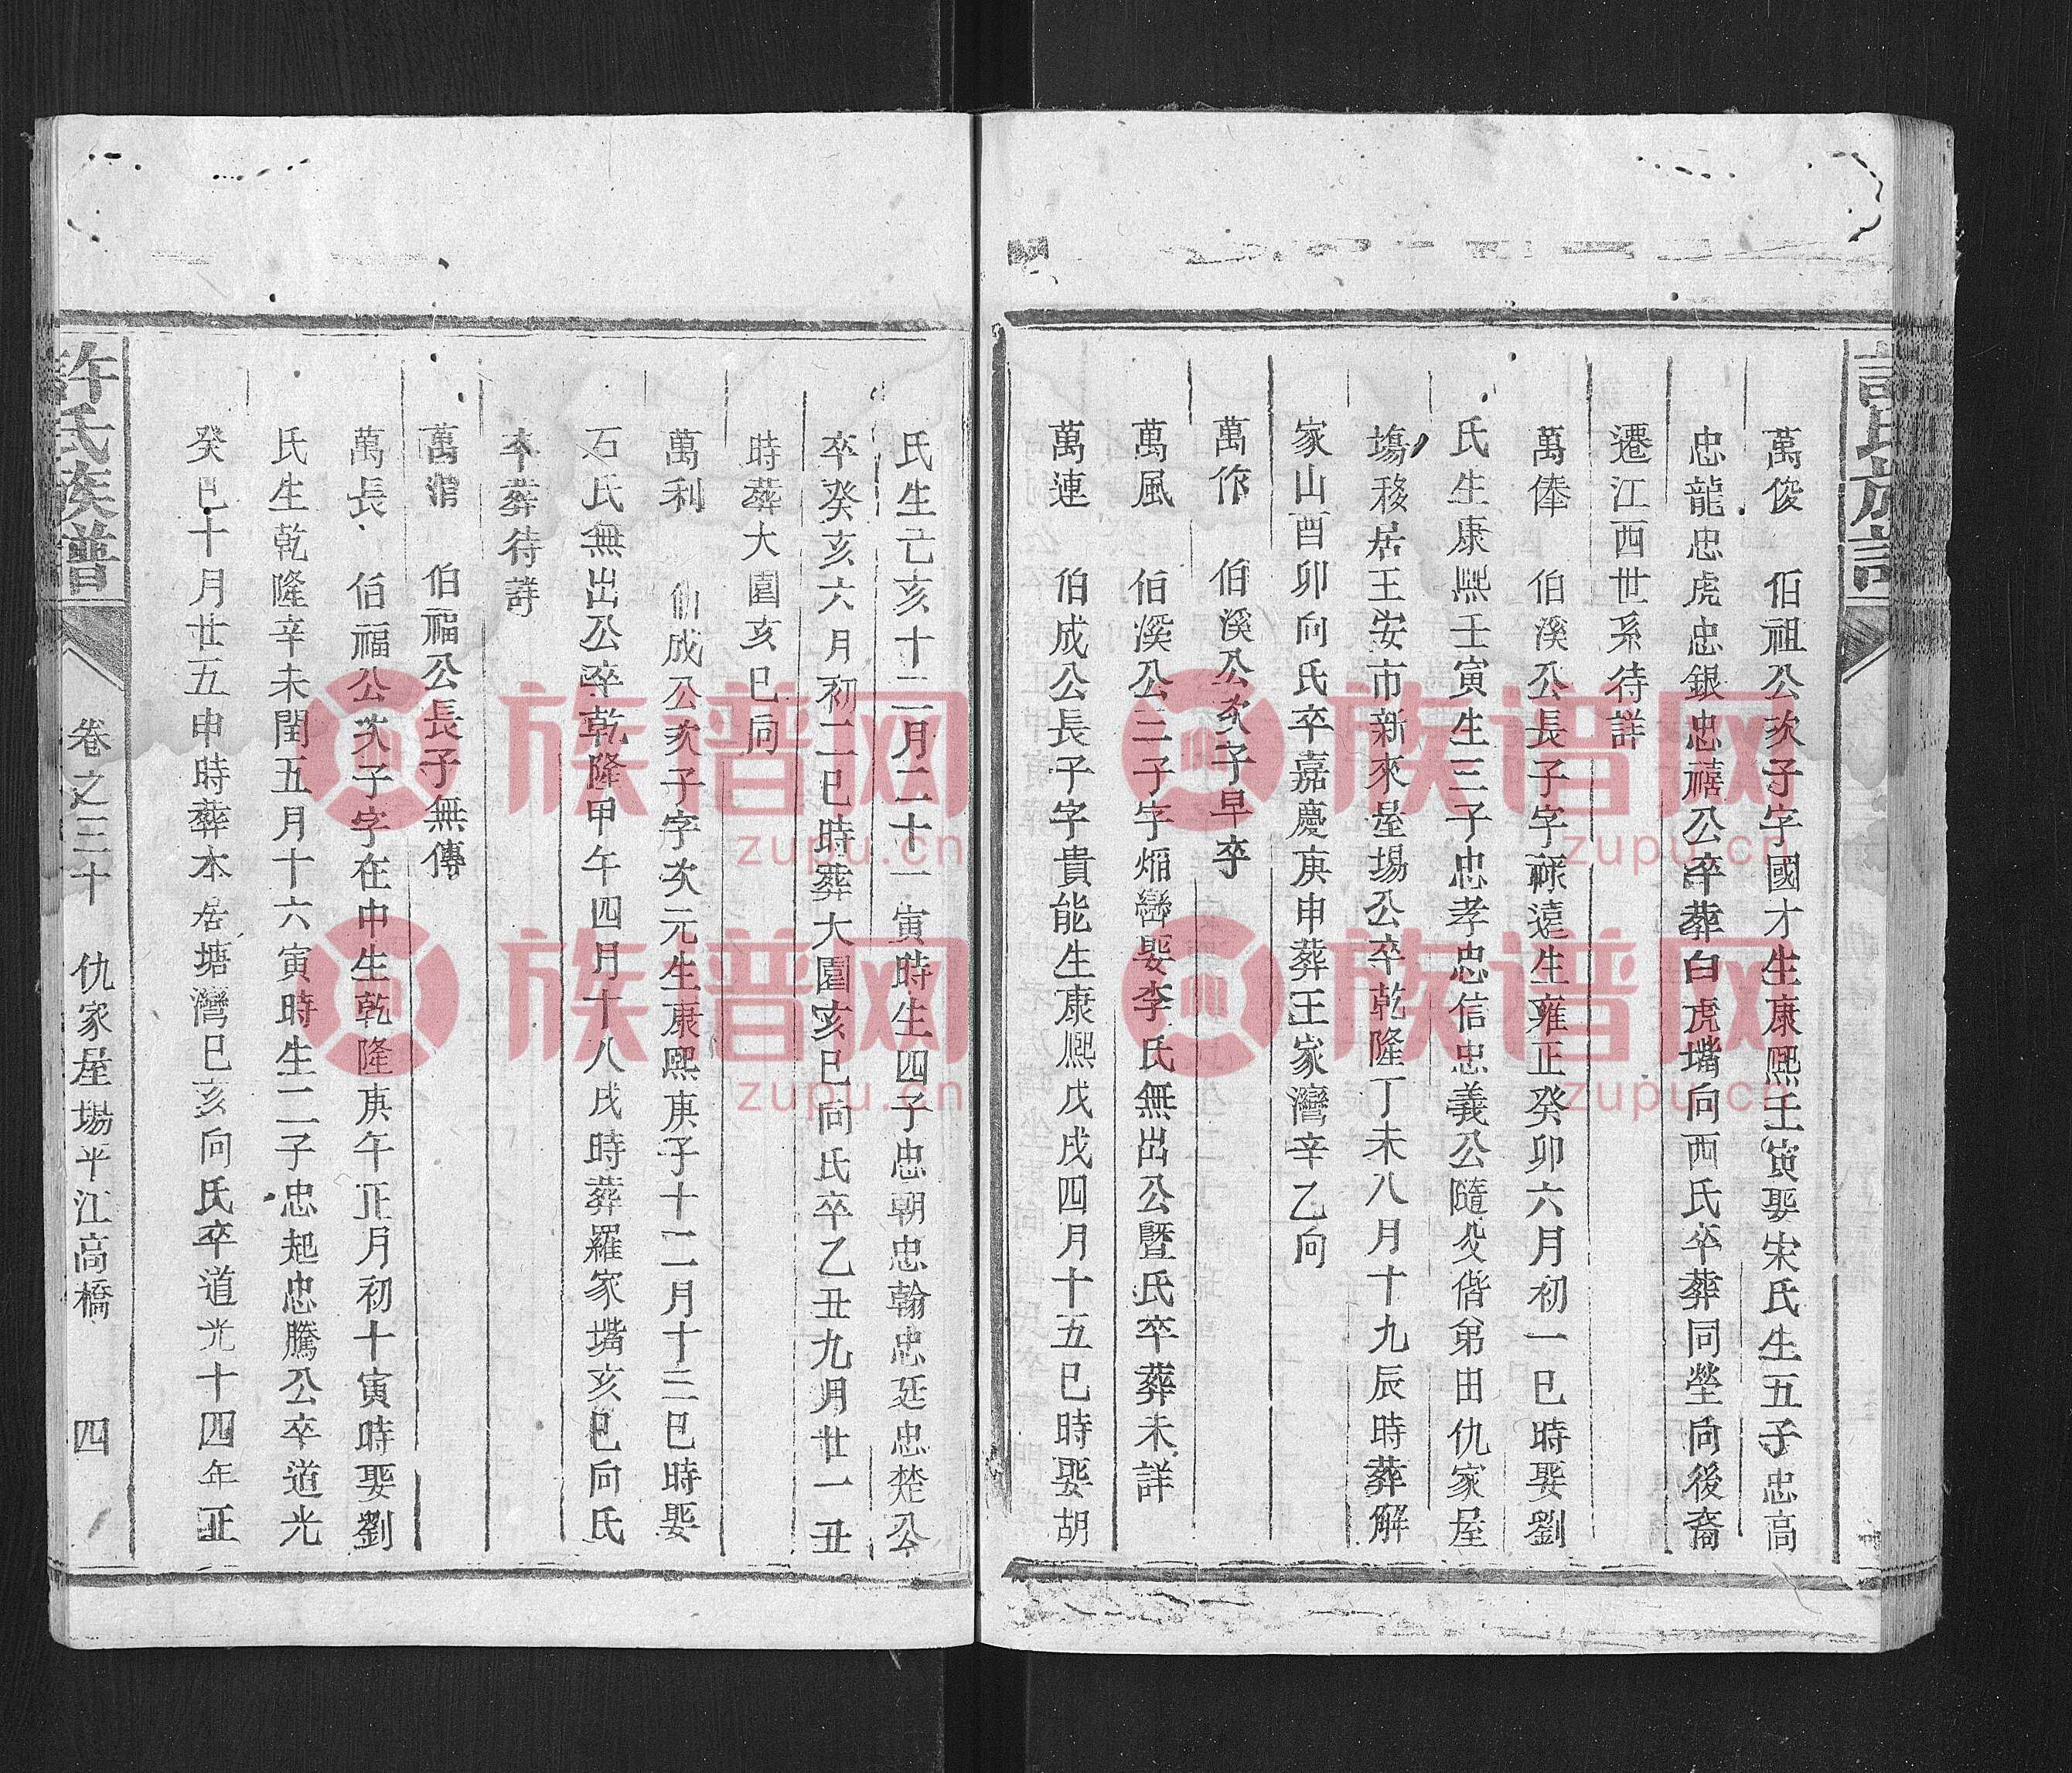 許氏族譜
萬俊　伯祖公次子字國才生康熙壬寅娶宋氏生五子忠高
忠龍忠虎忠銀忠禧公卒葬白虎嘴向西氏卒葬同塋向後裔
遷江西世系待詳
萬俸　伯溪公長子字祿遠生雍正癸卯六月初一巳時娶劉
氏生康熙壬寅生三子忠孝忠信忠義公隨父偕弟由仇家屋
塲移居王安市新來屋場公卒乾隆丁未八月十九辰時葬解
家山酉卯向氏卒嘉慶庚申葬王家灣辛乙向
萬作　伯溪公次子早卒
萬風　伯溪公三子字巒娶李氏無出公暨氏卒葬未詳
萬連　伯成公長子字貴能生康熙戊戌四月十五巳時娶胡
氏生己亥十二月二十一寅時生四子忠朝忠翰忠廷忠楚公
卒癸亥六月初二巳時葬大園亥巳向氏卒乙丑九月廿一丑
時葬大園亥巳同
萬利　伯成公次子字次元生康熙庚子十二月十三巳時娶
石氏無出公卒乾隆甲午四月十八戌時葬羅家嘴亥巳向氏
卒葬待詳
萬　伯福公長子無傳
萬長　伯福公次子字在中生乾隆庚午正月初十寅時娶劉
氏生乾隆辛未閏五月十六寅時生二子忠起忠騰公卒道光
癸巳十月廿五申時葬本居塘灣巳亥向氏卒道光十四年正
許氏族譜　卷之三十　仇家屋場平江高橋　四
族谱网
zupu.cn
族谱网
zupu.cn
族谱网
zupu.cn
族谱网
zupu.cn